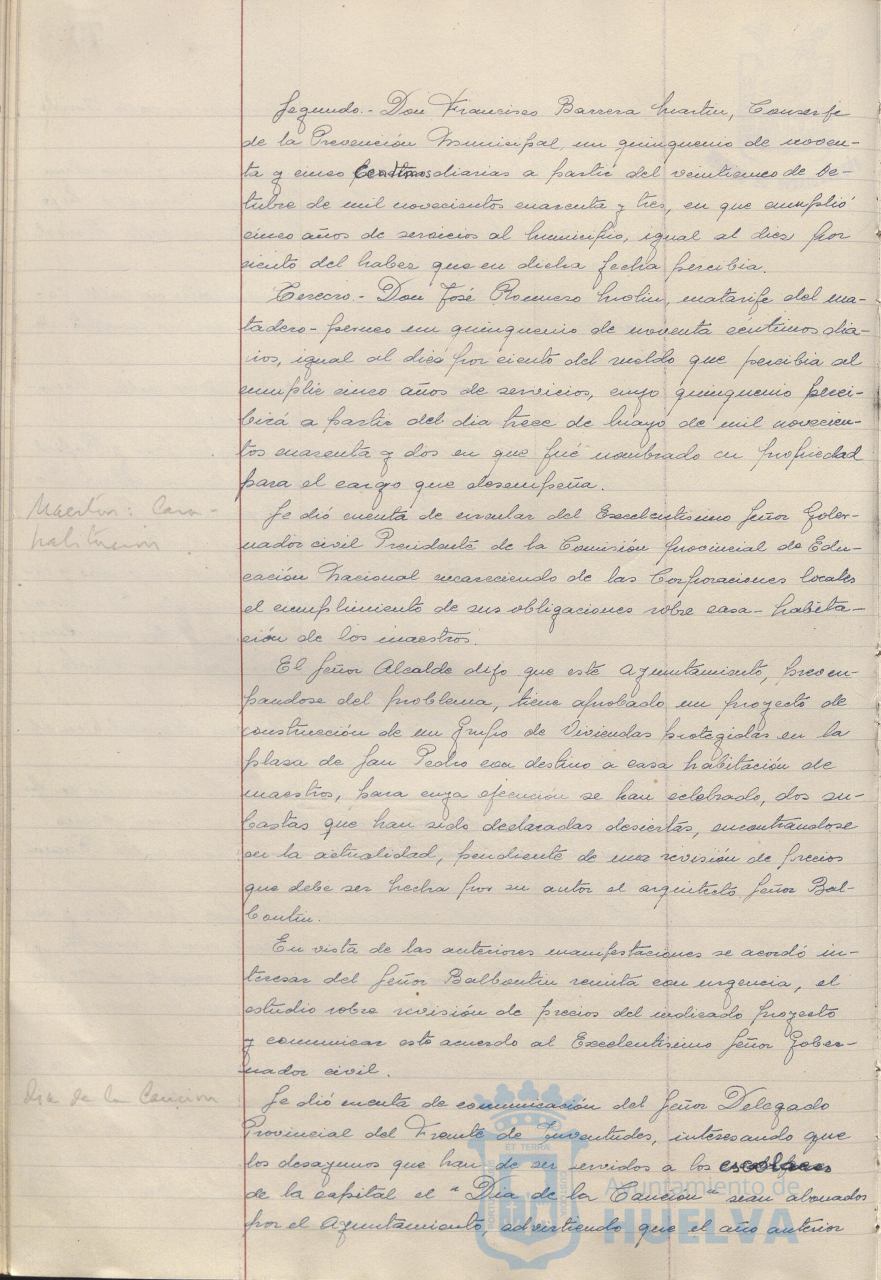 Segundo.- Don Francisco Barrera Martin, Conserje
de la Prevención Municipal, un quinquenio de noven-
ta y cinco centimos diarias a partir del veintiuno de Oc-
tubre de mil novecientos cuarenta y tres, en que cumplió
cinco años de servicios al Municipio, igual al diez por
ciento del haber que en dicha fecha percibia.
Tercero.- Don José Romero Molin, matarife del ma-
tadero-perneo un quinquenio de noventa céntimos dia-
rios, igual al diez por ciento del sueldo que percibia al
cumplir cinco años de servicios, cuyo quinquenio perci-
birá a partir del dia trece de Mayo de mil novecien-
tos cuarenta y dos en que fué nombrado en propiedad
para el cargo que desempeña.
Maestros: Casa-
habitacion
Se dió cuenta de circular del Excelentisimo Señor Gober-
nador civil Presidente de la Comisión provincial de Edu-
cación Nacional encareciendo de las Corporaciones locales
el cumplimiento de sus obligaciones sobre casa-habita-
ción de los maestros.
El Señor Alcalde dijo que este Ayuntamiento, preocu-
pandose del problema, tiene aprobado un proyecto de
construcción de un Grupo de Viviendas protegidas en la
plaza de San Pedro con destino a casa habitación de
maestros, para cuya ejecución se han celebrado, dos su-
bastas que han sido declaradas desiertas, encontrandose
en la actualidad, pendiente de una revisión de precios
que debe ser hecha por su autor el arquitecto Señor Bal-
bontin.
En vista de las anteriores manifestaciones se acordó in-
teresar del Señor Balbontin remita con urgencia, el
estudio sobre revisión de precios del indicado proyecto
y comunicar este acuerdo al Excelentisimo Señor Gober-
nador civil.
Dia de la Cancion
Se dió cuenta de comunicación del Señor Delegado
Provincial del Frente de Juventudes, interesando que
los desayunos que han de ser servidos a los escolares
de la capital el "Dia de la Canción" sean abonados
por el Ayuntamiento, advirtiendo que el año anterior
Ayuntamiento de
HUELVA